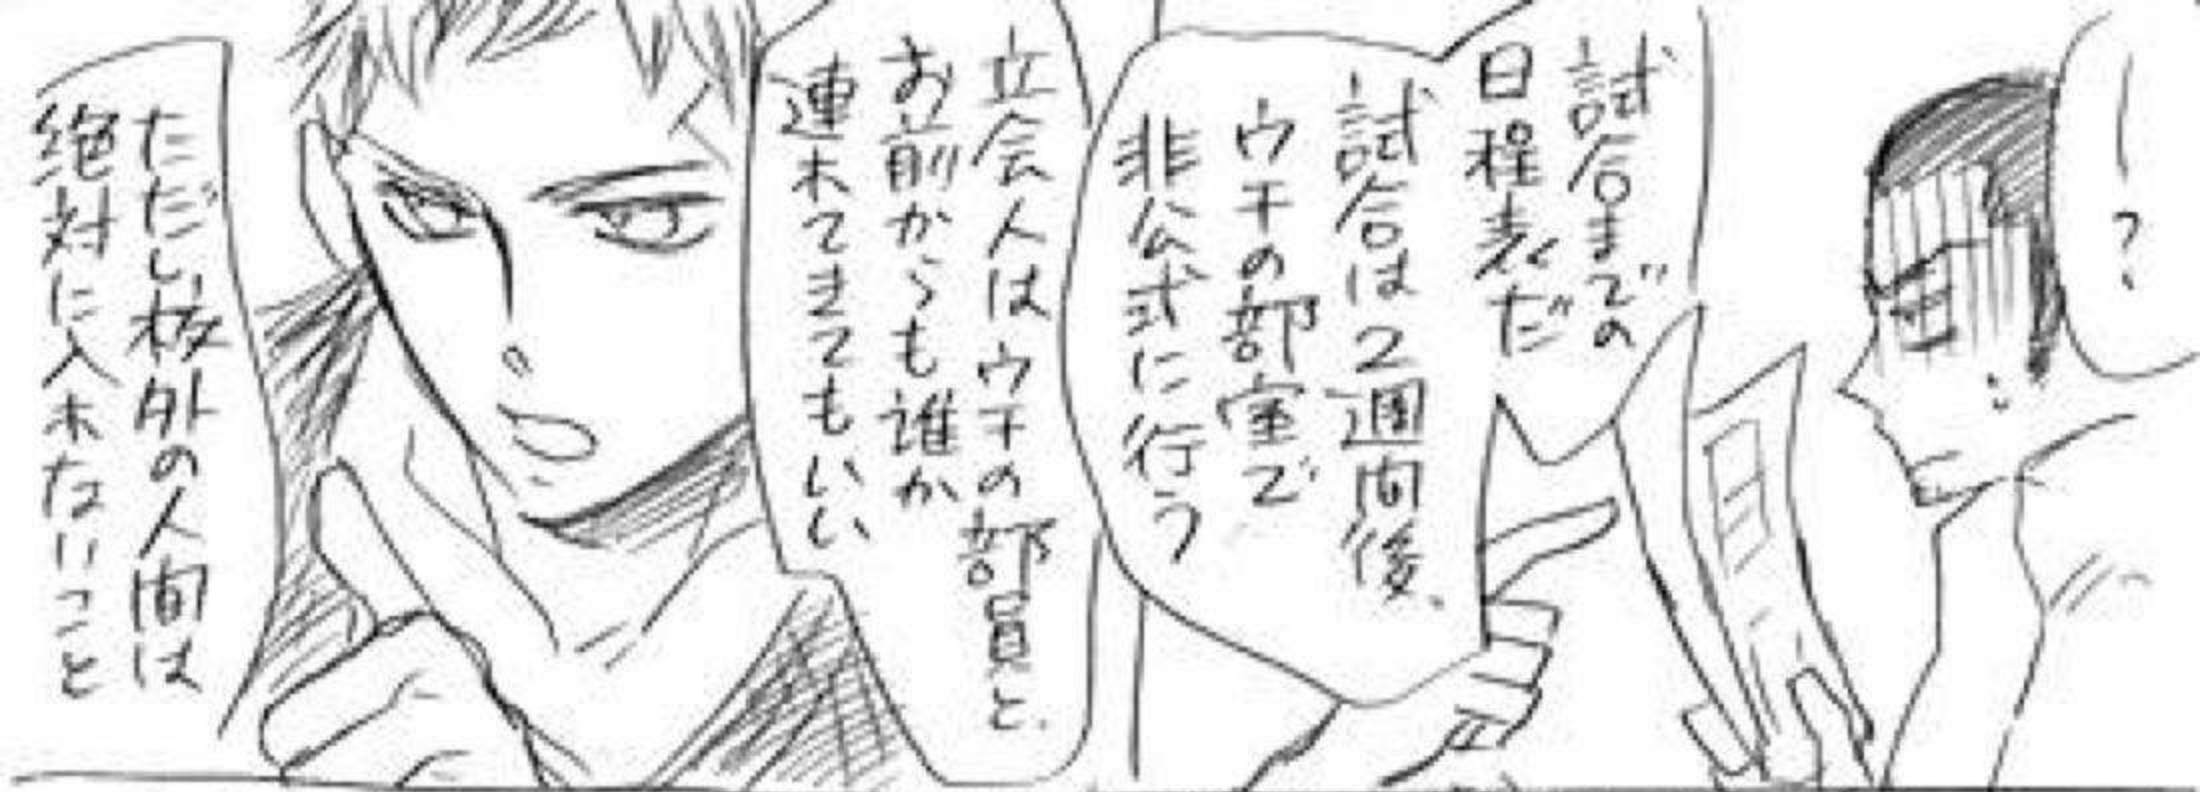 ー?
試合までの
日程表だ
試合は2週間後、
ウチの部室で
非公式に行う
立会人はウチの部員と、
お前からも誰か
連れてきてもいい
ただし校外の人間は
絶対に入れないこと